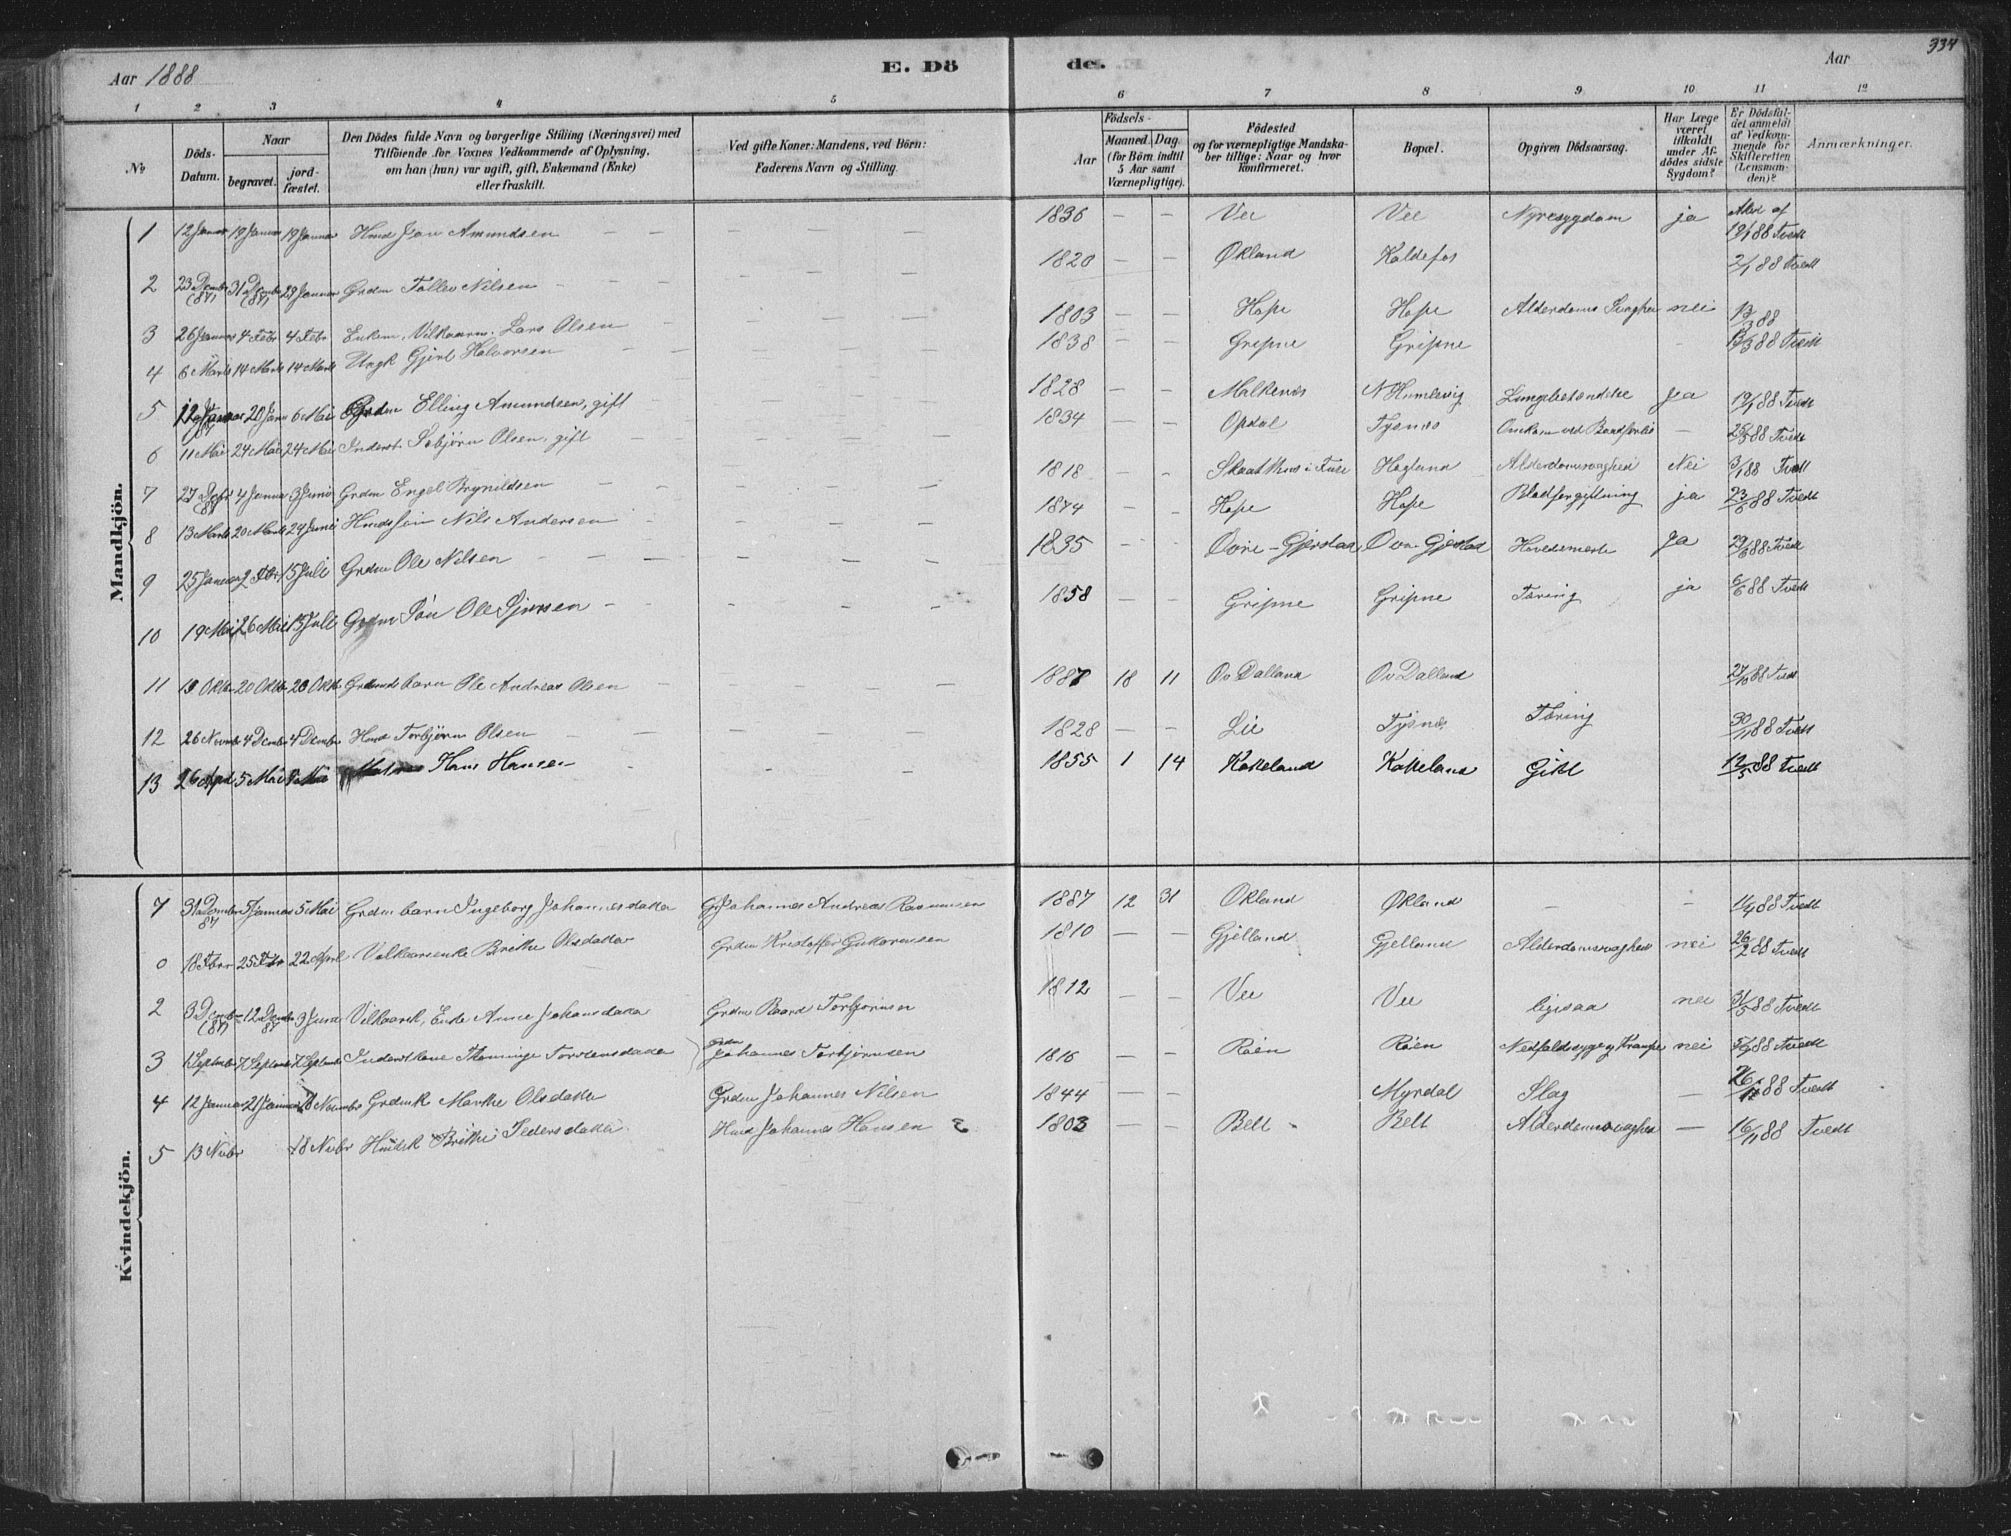 Aar 1888 E. Dö
des. Aar 334
1 2 3 4 5 6 7 8 9 10 11 12
No
Döds-Datum.
Naar
begravet.
jord-fæstet.
Den Dödes fulde Navn og borgerlige Stilling (Næringsvei) med
Tilföiende for Voxnes Vedkommende af Oplysning,
om han (hun) var ugift, gift, Enkemand (Enke)
eller fraskilt.
Ved gifte Koner: Mandens, ved Börn:
Faderens Navn og Stilling.
Födsels-
Aar
Maaned. Dag.
(for Börn indtil
5 Aar samt
Værnepligtige).
Födested
og for værnepligtige Mandska-
ber tillige: Naar og hvor
konfirmeret.
Bopæl.
Opgiven Dödsaarsag.
Har Læge
været
tilkaldt
under Af-
dödes sidste
Sygdom?
Er Dödsfal-
det anmeldt
af Vedkom-
mende for
Skifteretten
(Lensman-
den)?
Anmærkninger.
Mandkjön.
1 12 Januar 19 Januar 19 Januar Hmd Jan Amundsen — — — — — 1836 — — Vee Vee Nyresygdom ja 19/1 88 Tvedt
2 23 Dcmbr (87) 31 Dcmbr (87) 28 Januar Grdm Tollev Nilsen — — — — 1820 Økland Koldefos 2/1 88 Tvedt
3 26 Januar 4 Febr 4 Febr Enkem. Vilkaarm. Lars Olsen — — — — 1803 — — Hope Hope Alderdoms Svaghed nei 13/3 88
4 6 Marts 14 Marts 14 Marts Ungk Gjert Halvorsen — — — — 1838 — — Gripne Gripne — 13/3 88 Tvedt
5 12 Januar 20 Janr 6 Mai Grdm Elling Amundsen, gift — — — — 1828 — — Malkenes N Humlevig Lungebetændelse Ja 19/1 88 Tvedt
6 11 Mai 24 Mai 24 Mai Inderst Sæbjörn Olsen, gift — — — — 1834 — — Opdal Tysnes Omkom ved Baadforlis — 25/5 88 Tvedt
7 27 Dcbr 4 Januar 3 Juni Grdm Engel Brynildsen — — — — 1818 — — Skaathus i Fuse Hagland Alderdomssvaghed Nei 3/1 88 Tvedt
8 13 Marts 20 Marts 24 Juni Hmdssön Nils Andersen — — — — 1874 — — Hope Hope Blodforgiftning ja 23/6 88 Tvedt
9 25 Januar 2 Febr 15 Juli Grdm Ole Nilsen — — — — 1835 — — Övre-Gjerstad Övre Gjerstad Ja 88 Tvedt
10 19 Mai 26 Mai 15 Juli Grdm Sön Ole Sjursen — — — — 1858 — — Gripne Gripne Tæring ja 6/6 88 Tvedt
11 19 Oktbr 20 Oktbr 20 Oktb Grdmds barn Ole Andreas Olsen — — — — 1887 18 11 Ov Dalland Ov Dalland 27/10 88 Tvedt
12 26 Novmbr 4 Dcmbr 4 Dcmbr Hmd Torbjörn Olsen — — — — 1828 — — Lie Tysnes Tæring 30/11 88 Tvedt
13 26 April 5 Mai Mai Hans Hansen — — — — 1855 1 14 Kakeland Kakeland Gikt 12/5 88 Tvedt
Kvindekjön.
7 31 Dcmbr 87 7 Januar 5 Mai Grdm barn Ingeborg Johannesdatter Gr Johannes Andreas Rasmussen 1887 12 31 Økland Økland — — 11/4 88 Tvedt
0 18 Febr 25 Febr 22 April Vilkaarsenke Brithe Olsdatter Grdm Kristoffer Guttormsen 1810 — — Gjelland Gjelland Alderdomssvaghed nei 26/2 88 Tvedt
2 3 Dcmbr (87) 12 Dcmbr 87 3 Juni Vilkaarsk, Enke Anne Johansdatter Grdm Baard Torbjornsen 1812 — — Vee Vee nei 31/5 88 Tvedt
3 1 Septmbr 7 Septmbr 7 Septmbr Inderstkone Torstensdatter Grdm Johannes Torbjörnsen 1816 — — Röen Röen Nedfaldssyge og Krampe nei 5/9 88 Tvedt
4 12 Januar 21 Januar 18 Novmbr Grdmk Marthe Olsdatter Grdm Johannes Nilsen 1844 — — Myrdal Slag — 88 Tvedt
5 13 Nvbr 18 Nvbr Hmdsk Brithe Pedersdatter Hmd Johannes Hansen 1803 — — Belt Belt Alderdomssvaghed — 16/11 88 Tvedt